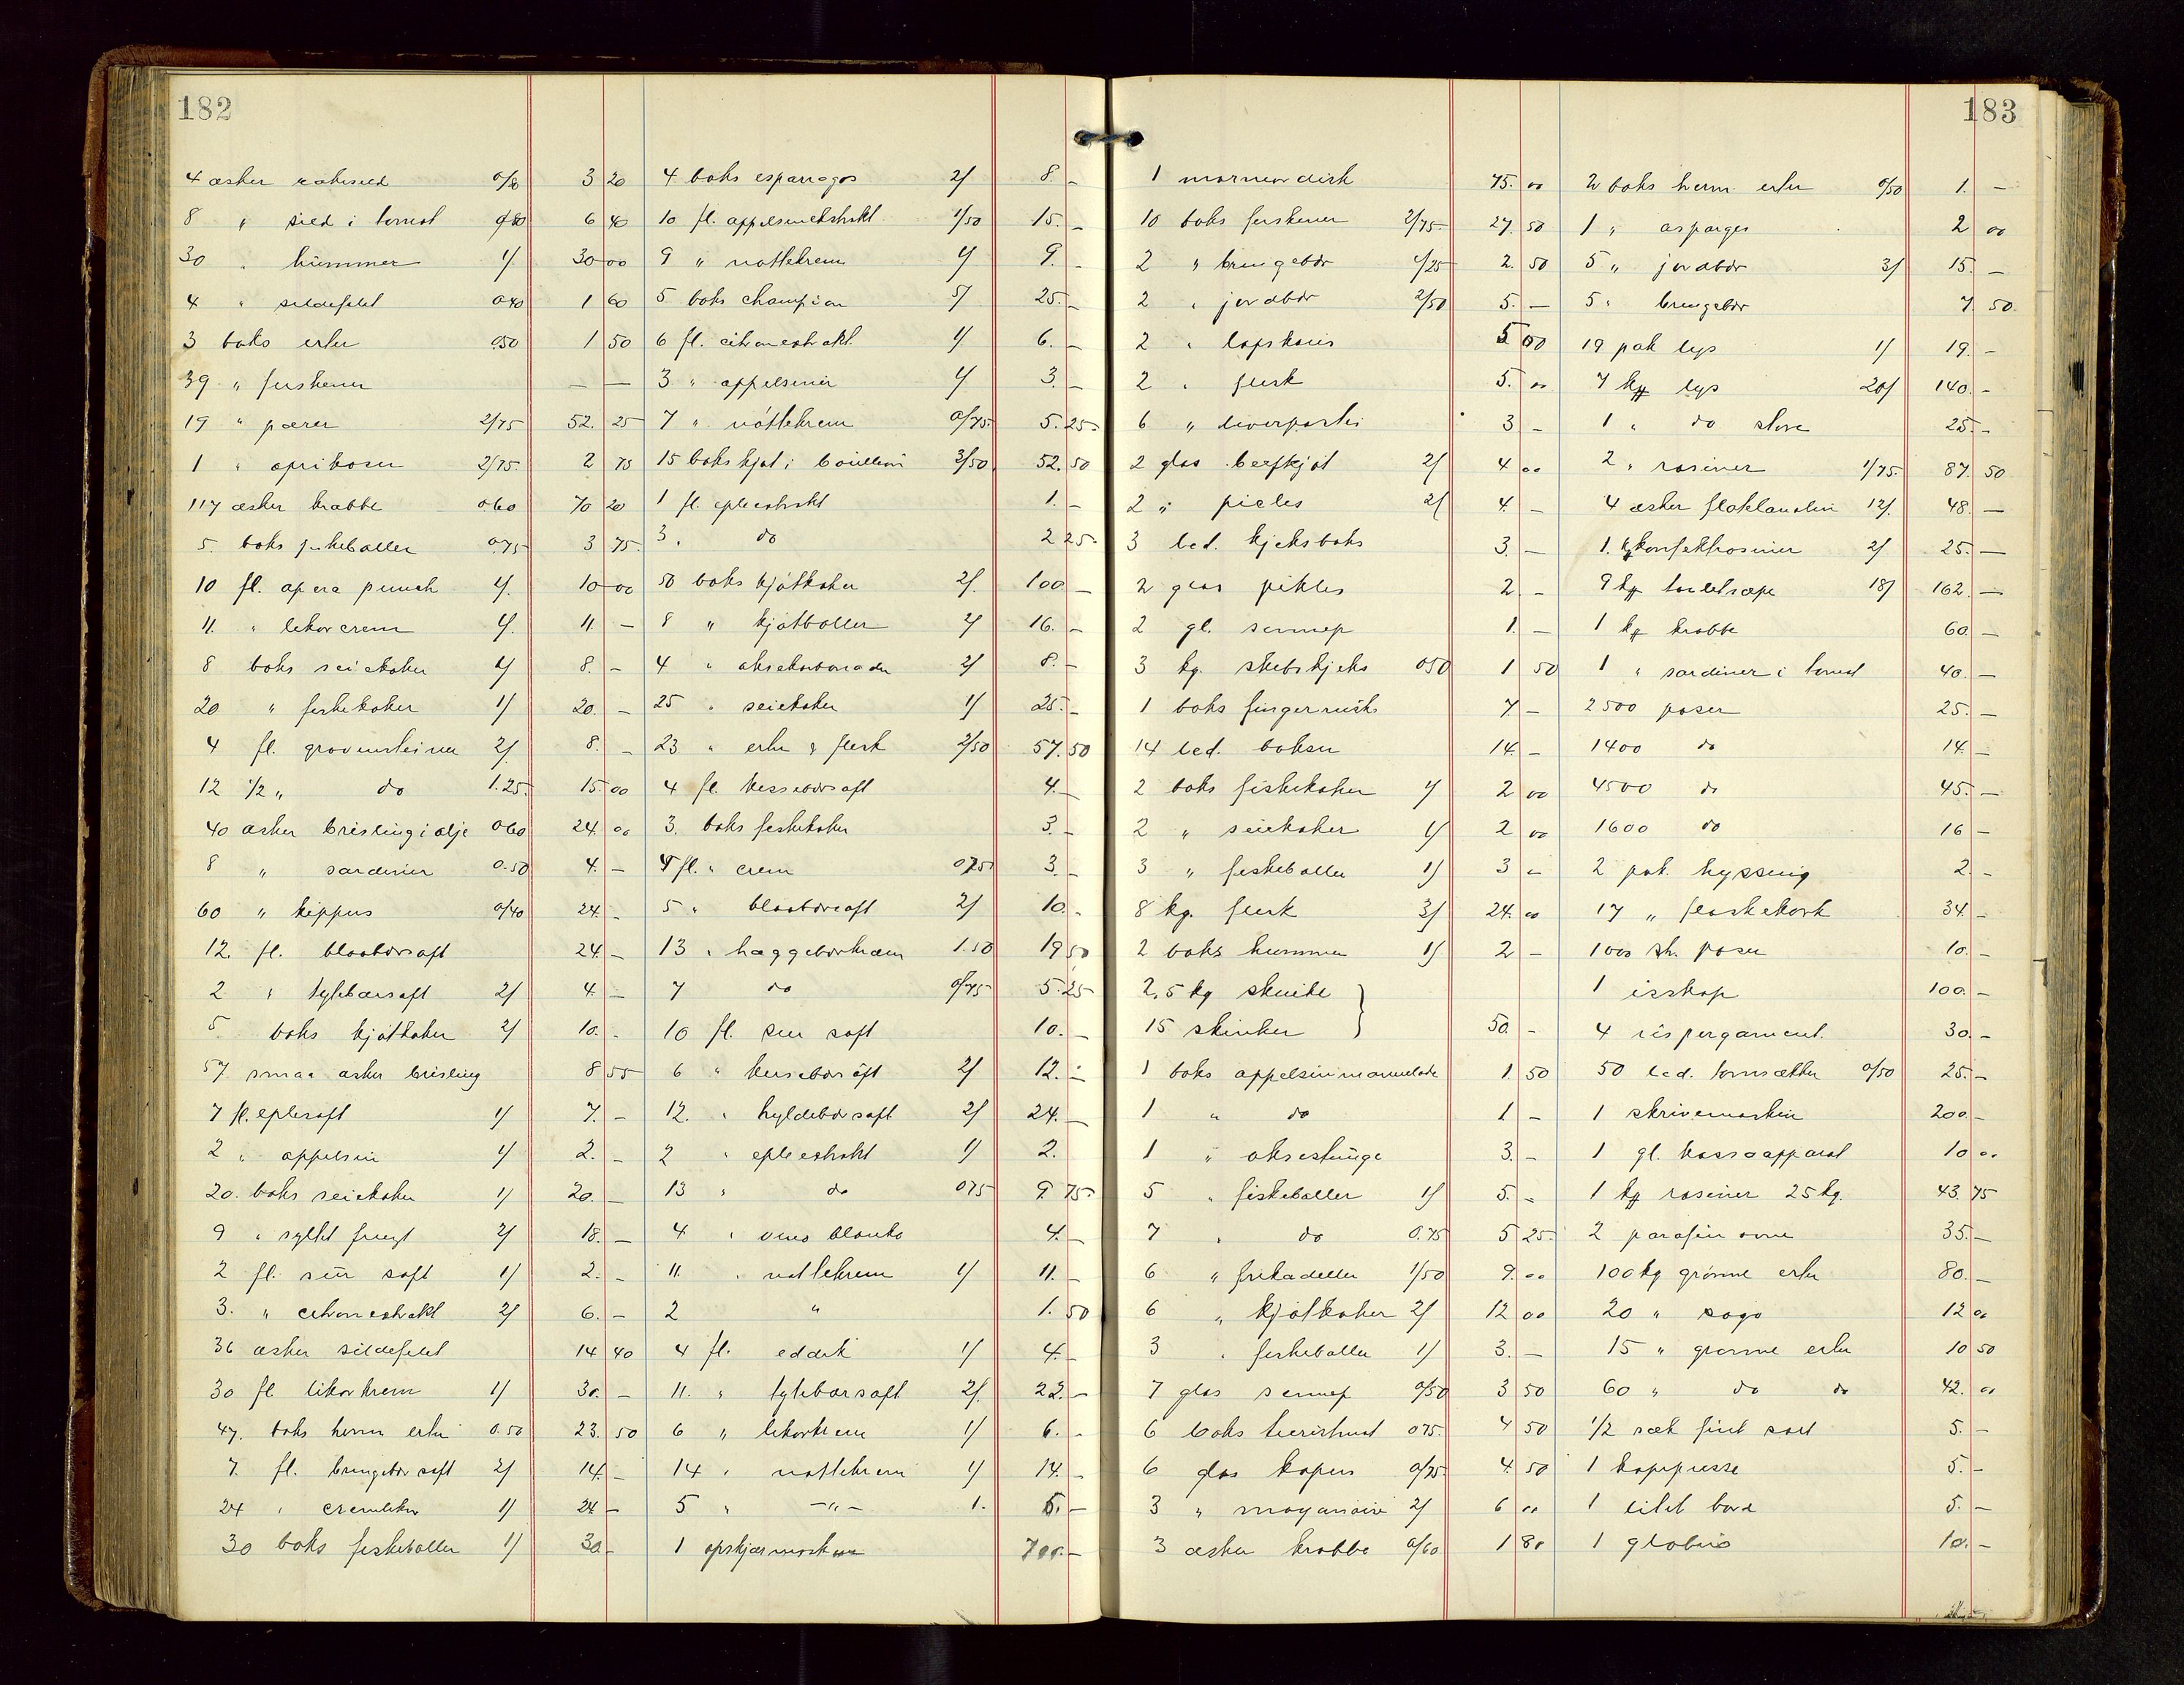 182
4 æsker røkesild 0/80 3 20
8 " sild i tomat 0/80 6 40
30 " hummer 1/ 30 00
4 " sildefilet 0 40 1 60
3 boks erter 0.50 1 50
39 " ferskener — —
19 " pærer 2/75 52. 25
1 " aprikoser 2/75. 2 75
117 æsker krabbe 0 60 70 20
5. boks fiskeboller 0.75 3 75.
10 fl. opera punch 1/. 10 00
11. " likør crem 1/. 11 —
8 boks seiekaker 1/ 8. –
20 " fiskekaker 1/ 20. –
4 fl. gravensteiner 2/ 8. –
12 1/2 " do 1.25. 15. 00
40 æsker brisling i olje 0 60 24. 00
8 " sardiner 0.50 4. –
60 " kippers 0/40 24. –
12. fl. blaabærsaft 24. –
2 " tytebærsaft 2/ 4. –
5 boks kjøtkaker 2/ 10. –
57 smaa æsker brisling 8 55
7 fl. eplesaft 1/ 7. –
2 " appelsin 1/ 2. –
20. boks seiekaker 1/ 20. –
9 " syltet frugt 2/ 18. –
2 fl. sur saft 1/ 2. –
3. " citronestrakt 2/ 6. –
36 æsker sildefilet 14 40
30 fl likørkrem 1/ 30. –
47. boks herm erter 0.50 23. 50
7. fl. bringebær saft 2/ 14. –
24 " cremlikør 1/ 24 –
30 boks fiskeboller 1/ 30 –
4 boks esparragos 2/ 8. –
10 fl. appelsinekstrakt 1/50 15. –
9 " nøttekrem 1/ 9. –
5 boks champion 5/ 25. –
6 fl. citronestrakt 1/ 6. –
3 " appelsiner 1/ 3. –
7 " nøttekrem 0/75. 5. 25
15 boks kjøt i bouillon 3/50 52. 50
1 fl. epleestrakt 1. –
3 " do 2 25.
50 boks kjøtkaker 2/. 100. –
8 " kjøtboller 2/ 16. –
4 " oksekarbonader 2/ 8. –
25 " seiekaker 1/ 25. –
23 " erter & flesk 2/50 57. 50
4 fl. kessebærsaft 4. –
3. boks fiskekaker 3. –
4 fl. " crem 0 75 3. –
5 " blaabærsaft 2/ 10. –
13 " hæggebærkrem 1.50 19 50
7 do 0/75 5. 25
10 fl. sur saft 10. –
6 " kirsebærsaft 2/ 12. –
12. " hyldebærsaft 2/ 24. –
2 " epleestrakt 1/ 2.
13 " do 0 75 9. 75
4 " vino blanko 4. –
11. " nøttekrem 1/ 11. –
2 " 1. 50
4 fl. eddik 1/ 4. –
11. " tytebærsaft 2/. 22. –
6 " likørkrem 1/ 6. –
14 " nøttekrem 1/ 14. –
5 " –"– 1. 5. –
1 opskjærmaskine 700. –
183
1 marmordisk 75. 00
10 boks ferskener 2/75 27. 50
2 " bringebær 1/25 2. 50
2 " jordbær 2/50 5. —
2 " lapskaus 5 00
2 " flesk 5. 00
6 " leverpostei 3 –
2 glas beefkjøt 2/ 4 00
2 " picles 2/ 4. –
3 led. kjeksboks 3. –
2 glas pikles 2. –
2 gl. sennep 1. –
3 kg. skibskjeks 0 50 1 50
1 boks fingerrusks 7. –
14 led. bokser 14. –
2 boks fiskekaker 1/ 2 00
2 " seiekaker 1/ 2 00
3 " fiskeboller 1/ 3 –
8 kg. flesk 3/ 24. 00
2 boks hummer 1/. 2 –
2,5 kg skinke
15 skinker 50. –
1 boks appelsinmarmelade 1. 50
1 " do 1 –
1 " oksetunge 3. –
5 " fiskeboller 1/ 5. –
7 " do 0.75 5 25
6 " frikadeller 1/50 9. 00
6 " kjøtkaker 2/ 12 00
3 " fiskeboller 1/ 3. –
7 glas sennep 0/50 3 50
6 boks turistmat 0 75. 4 50
6 glas kapers 0/75. 4. 50
3 " mayonaise 2/ 6 00
3 æsker krabbe 0/60 1 80
2 boks herm. erter 0/50 1. –
1 " asparges 2 00
5 " jordbær 3/ 15. –
5 " bringebær 7. 50
19 pak lys 1/ 19. –
7 kss lys 20/ 140. –
1 " do store 25. –
2 " rosiner 1/75. 87. 50
4 æsker 12/. 48. —
1. konfektrosiner 2/ 25. —
9 kss toiletsæpe 18/ 162. —
1 kss krabbe 60. —
1 " sardiner i tomat 40. —
2500 poser 25. —
1400 do 14. –
4500 do 45. –
1600 do 16 –
2 pak. hyssing 2. –
17 " flaskekork 34. –
1000 st. poser 10. –
1 isskap 100. –
4 rispergament. 30. –
50 led. tomsækker 0/50 25. –
1 skrivemaskin 200. –
1 gl. kassaapparat 10 00
1 kss rosiner 25 kg. 43. 75
2 parafin ovne 35. –
100 kg grønne erter 80. –
20 " sago 12 00
15 " grønne erter 10 50
60 " do do 42. 00
1/2 sæk fint salt 5. –
1 kopipresse 5. –
1 litet bord 5. –
1 globus 10. –